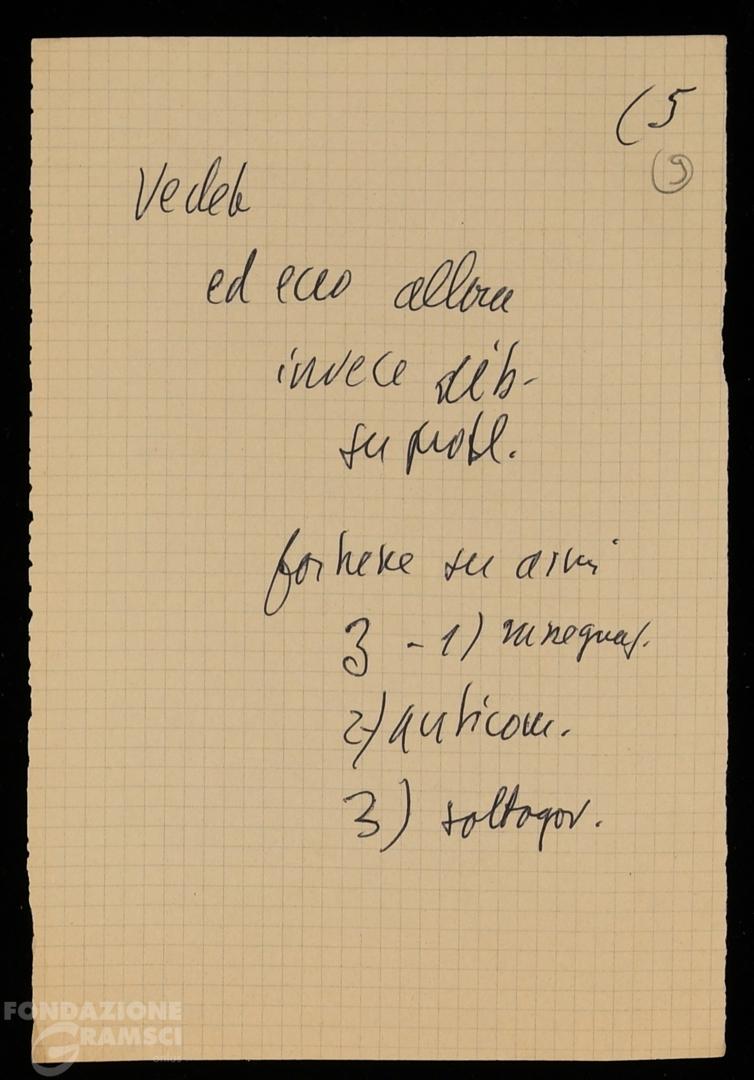 (5
9
Vedete
ed ecco allora
invece dib-
su probl.
fornire su armi
3 - 1) rassegnaz.
2) anticom.
3) sottogov.
FONDAZIONE
GRAMSCI
onlus